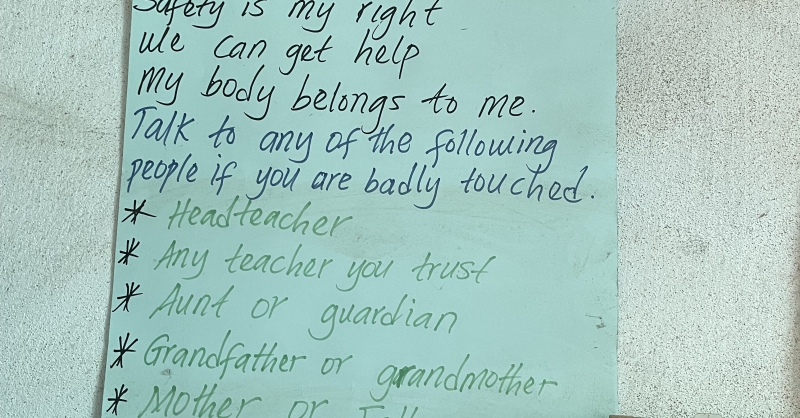 Safety is my right
We can get help
My body belongs to me.
Talk to any of the following
people if you are badly touched.
* Headteacher
* Any teacher you trust
* Aunt or guardian
* Grandfather or grandmother
* Mother or